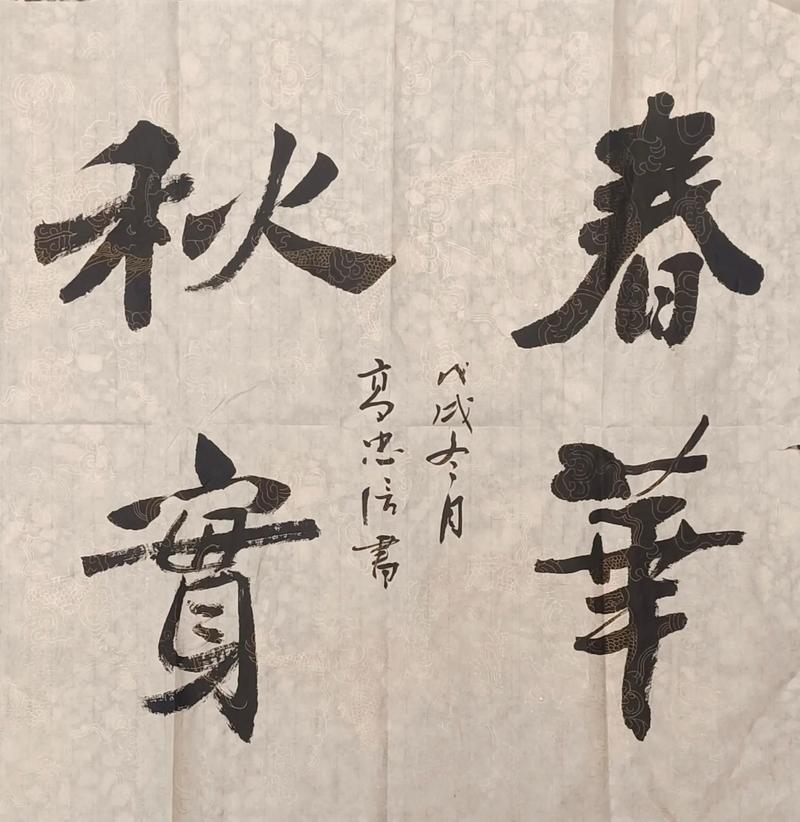 春華
秋實
戊戌冬月
高忠信書